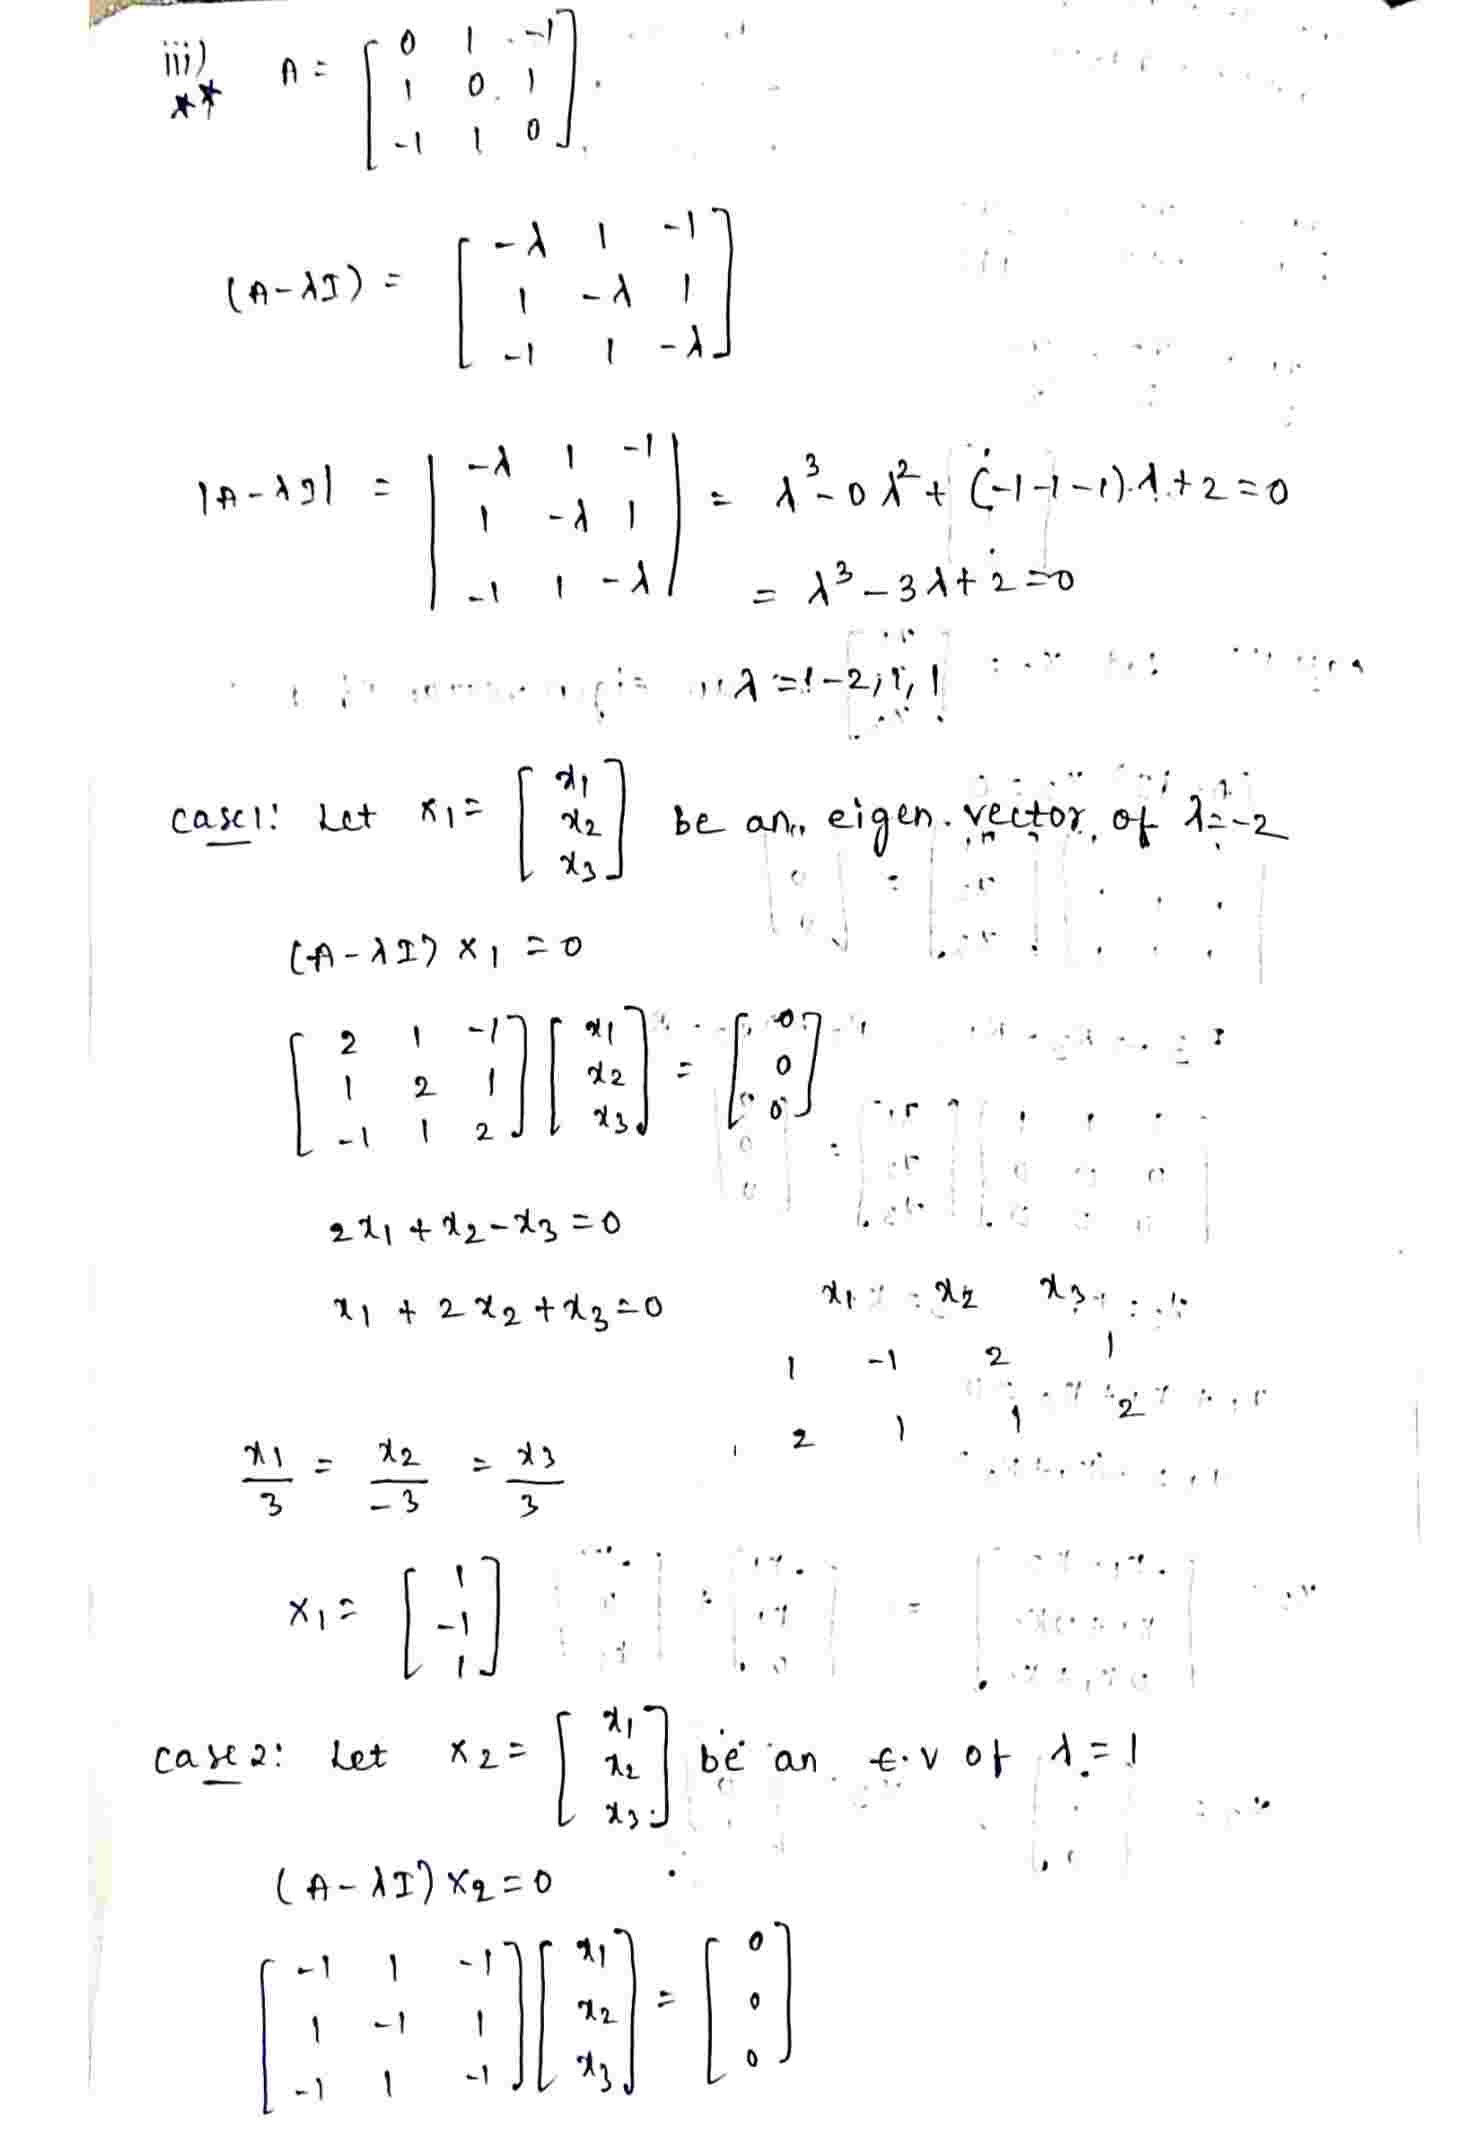 iii) A = [ 0 1 -1
1 0 1
-1 1 0 ]
**
(A-λI) = [ -λ 1 -1
1 -λ 1
-1 1 -λ ]
|A-λI| = | -λ 1 -1
1 -λ 1
-1 1 -λ | = λ³-0λ²+(-1-1-1).λ+2=0
= λ³-3λ+2=0
λ = -2, 1, 1
case1: Let X1 = [ x1
x2
x3 ] be an eigen vector of λ=-2
(A-λI) X1 = 0
[ 2 1 -1
1 2 1
-1 1 2 ] [ x1
x2
x3 ] = [ 0
0
0 ]
2x1+x2-x3=0
x1+2x2+x3=0
x1 x2 x3
1 -1 2 1
2 1 1 2
x1/3 = x2/-3 = x3/3
X1 = [ 1
-1
1 ]
case2: Let X2 = [ x1
x2
x3 ] be an E.V of λ=1
(A-λI) X2 = 0
[ -1 1 -1
1 -1 1
-1 1 -1 ] [ x1
x2
x3 ] = [ 0
0
0 ]